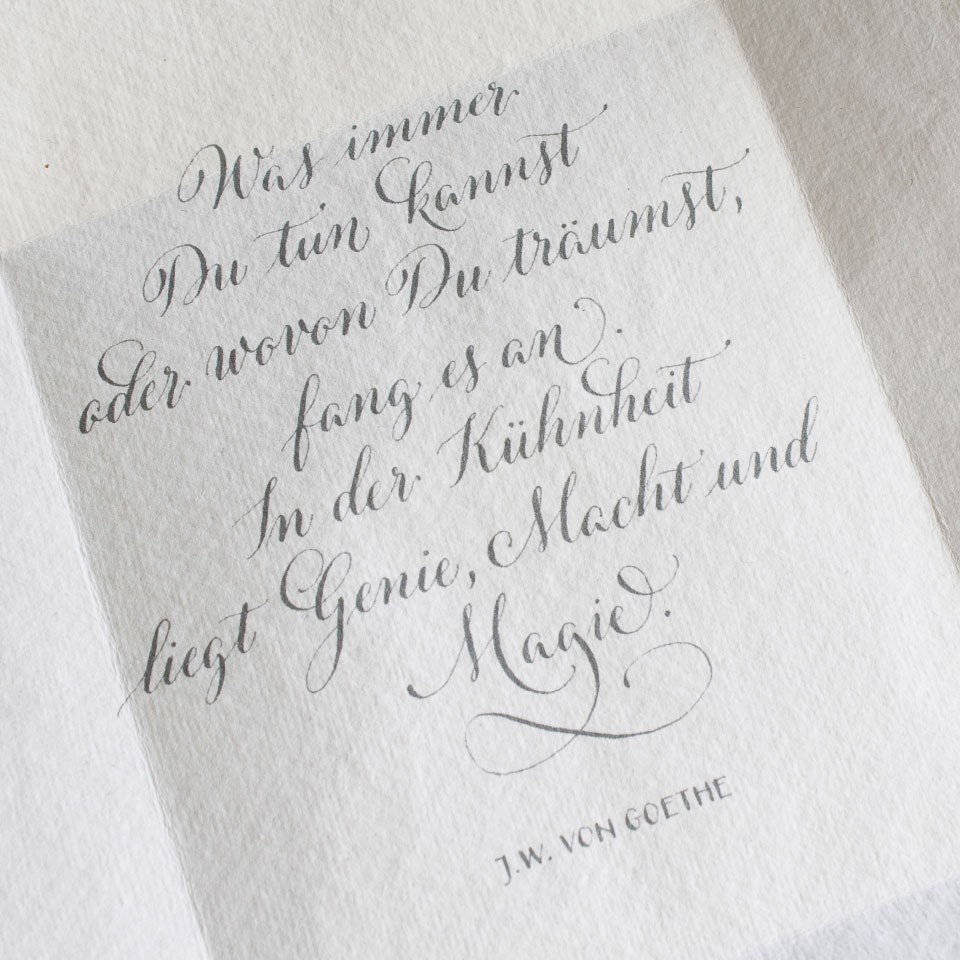 Was immer
Du tun kannst
oder wovon Du träumst,
fang es an.
In der Kühnheit
liegt Genie, Macht und
Magie.
J.W. VON GOETHE